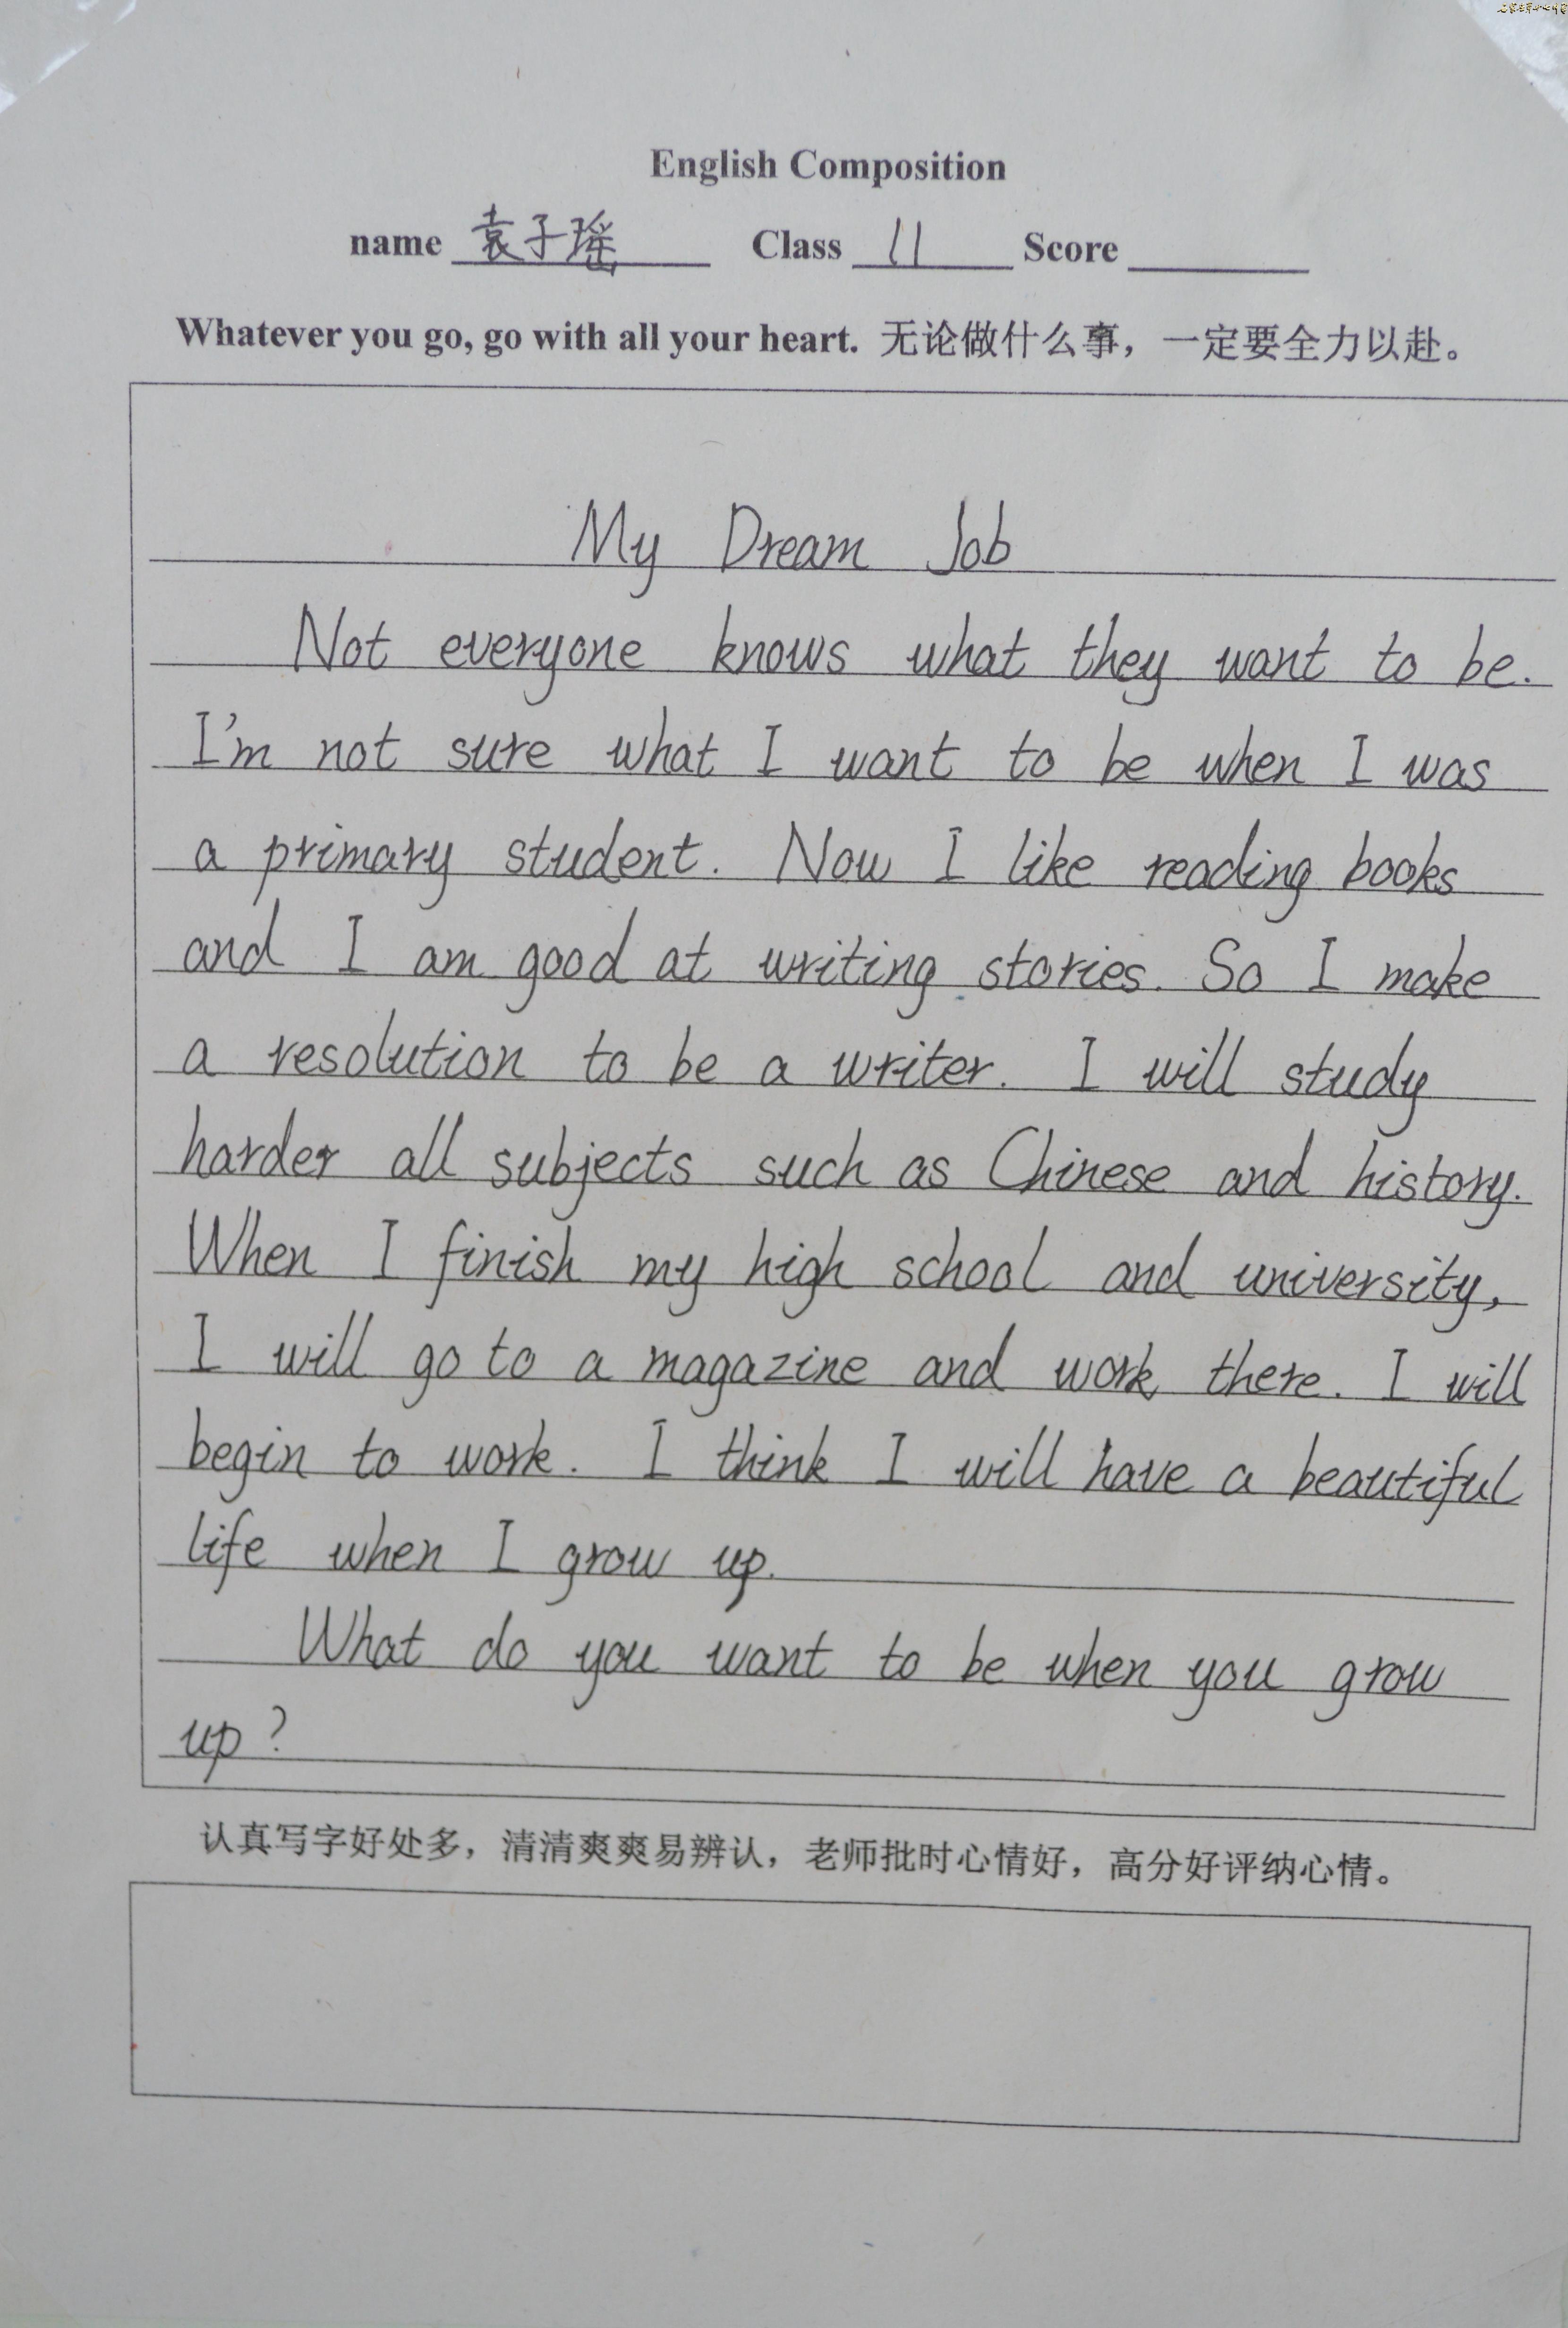 English Composition
name 袁子瑶 Class 11 Score
Whatever you go, go with all your heart. 无论做什么事，一定要全力以赴。
My Dream Job
Not everyone knows what they want to be.
I'm not sure what I want to be when I was
a primary student. Now I like reading books
and I am good at writing stories. So I make
a resolution to be a writer. I will study
harder all subjects such as Chinese and history.
When I finish my high school and university,
I will go to a magazine and work there. I will
begin to work. I think I will have a beautiful
life when I grow up.
What do you want to be when you grow
up?
认真写字好处多，清清爽爽易辨认，老师批时心情好，高分好评纳心情。